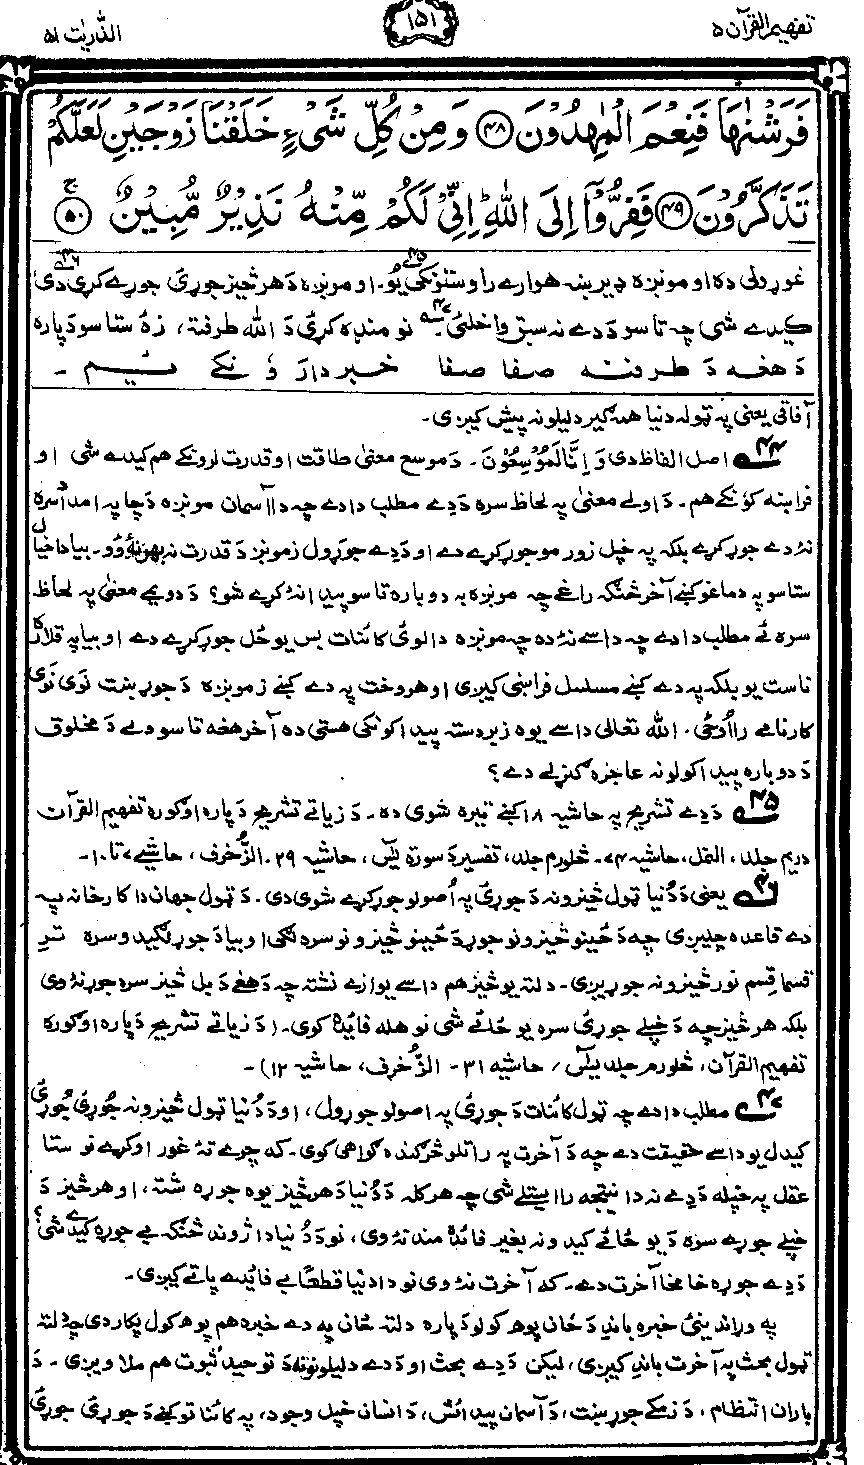 تفهیم القرآن ۵ ۱۵۱ الذّریٰت ۵۱
فَرَشْنٰهَا فَنِعْمَ الْمٰهِدُوْنَ ﴿۴۸﴾ وَ مِنْ كُلِّ شَیْءٍ خَلَقْنَا زَوْجَیْنِ لَعَلَّكُمْ
تَذَكَّرُوْنَ ﴿۴۹﴾ فَفِرُّوْۤا اِلَی اللّٰهِ ؕ اِنِّیْ لَكُمْ مِّنْهُ نَذِیْرٌ مُّبِیْنٌ ﴿۵۰﴾ ج
غوړولی ده او مونږه ډیر ښه هوارے راوستونکی یُو۔۴۵ او مونږه دَ هر څیز جوړئ جوړے کړی دی۴۶
کیدے شی چه تاسو دَدے نه سبق واخلئ۔۴۷ نو منډه کړئ دَ اللّٰه طرفته، زهٔ ستاسو دَپاره
دَ هغه دَ طرفنه صفا صفا خبردار وَنکے یُم ۔
آفاقی یعنی په ټوله دنیا همه گیر دلیلونه پیش کیږی۔
۴۴ اصل الفاظ دی وَ اِنَّا لَمُوْسِعُوْنَ۔ دَ موسع معنیٰ طاقت او قدرت لرونکے هم کیدے شی او
فراښه کوُنکے هم۔ دَ اولے معنیٰ په لحاظ سره دَدے مطلب دادے چه دا آسمان مونږه دَ چا په امداد سره
نهٔ دے جوړ کړے بلکه په خپل زور مو جوړ کړے دے او دَدے جوړول زمونږ دَ قدرت نه بهر نهٔ وُو۔ بیا دا خیال
ستاسو په دماغو کښے آخر څنگه راغے چه مونږه به دوباره تاسو پیدا نهٔ کړے شو؟ دَ دویمے معنیٰ په لحاظ
سره ئے مطلب دادے چه داسے نهٔ ده چه مونږه دا لوئ کائنات بس یو ځل جوړ کړے دے او بیا په قلار
ناست یو بلکه په دے کښے مسلسل فراښی کیږی او هر وخت په دے کښے زمونږه دَ جوړښت نَوی نَوی
کارنامے رااُوځی۔ اللّٰه تعالی داسے یوه زبردسته پیدا کونکی هستی ده آخر هغه تاسو ولے دَ مخلوق
دَ دوباره پیدا کولو نه عاجزه گنړلے دے؟
۴۵ دَدے تشریح په حاشیه ۱۸ کښے تیره شوی ده۔ دَ زیاتے تشریح دَپاره اوگوره تفهیم القرآن
دریم جلد، النمل، حاشیه ۷۴۔ څلورم جلد، تفسیر دَ سورة یٰسٓ، حاشیه ۲۹۔ الزُّخرف، حاشیے ۷ تا ۱۰۔
۴۶ یعنی دَ دُنیا ټول څیزونه دَ جوړئ په اُصولو جوړ کړے شوی دی۔ دَ ټول جهان دا کارخانه په
دے قاعده چلیږی چه دَ ځینو څیزونو جوړه دَ ځینو څیزونو سره لگی او بیا دَ جوړ لگیدو سره تر
قسما قِسم نور څیزونه جوړیږی۔ دلته یو څیز هم داسے یوازے نشته چه دَ هغے دَ بل څیز سره جوړ نهٔ وی
بلکه هر څیز چه دَ خپلے جوړئ سره یو ځائے شی نو هله فائده کوی۔ (دَ زیاتے تشریح دَپاره اوگوره
تفهیم القرآن، څلورم جلد یٰسٓ، حاشیه ۳۱۔ الزُّخرف، حاشیه ۱۲)۔
۴۷ مطلب دادے چه ټول کائنات دَ جوړئ په اصولو جوړول، او دَ دُنیا ټول څیزونه جوړئ جوړئ
کیدل یو داسے حقیقت دے چه دَ آخرت په راتلو څرگنده گواهی کوی۔ که چرے تهٔ غور اوکړے نو ستا
عقل په خپله دَدے نه دا نتیجه راایستلے شی چه هرکله دَ دُنیا دَ هر څیز یوه جوړه شته، او هر څیز دَ
خپلے جوړے سره دَ یو ځائے کیدو نه بغیر فائده مند نهٔ وی، نو دَ دُنیا دا ژوند څنگه بے جوړه کیدے شی؟
دَدے جوړه خامخا آخرت دے۔ که آخرت نهٔ وی نو دا دنیا قطعًا بے فائدے پاتے کیږی۔
په وړاندینئ خبره باندِ دَ ځان پوهه کولو دَپاره دلته ځان په دے خبره هم پوهه کول پکار دی چه دلته
ټول بحث په آخرت باندِ کیږی، لیکن دَدے بحث او دَدے دلیلونو نه دَ توحید ثبوت هم ملاویږی۔ دَ
باران انتظام، دَ زمکے جوړښت، دَ آسمان پیدائش، دَ انسان خپل وجود، په کائناتو کښے دَ جوړئ جوړئ